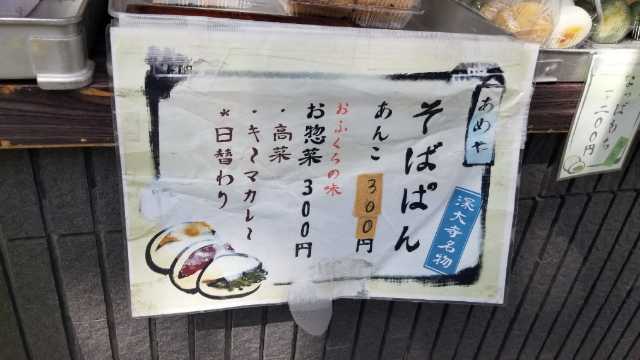 あめや
そばぱん
深大寺名物
あんこ 300円
おふくろの味
お惣菜 300円
・高菜
・キーマカレー
*日替わり
200円